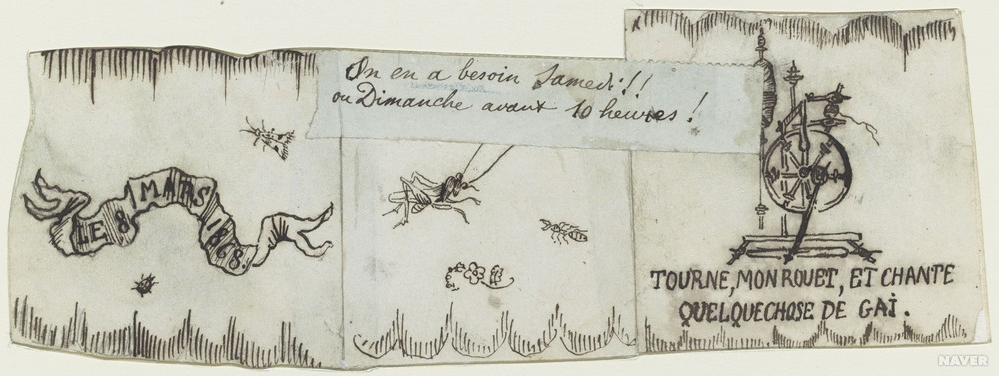 On en a besoin Samedi!!
ou Dimanche avant 10 heures!
LE 8 MARS 1868.
TOURNE, MON ROUET, ET CHANTE
QUELQUECHOSE DE GAÏ.
NAVER